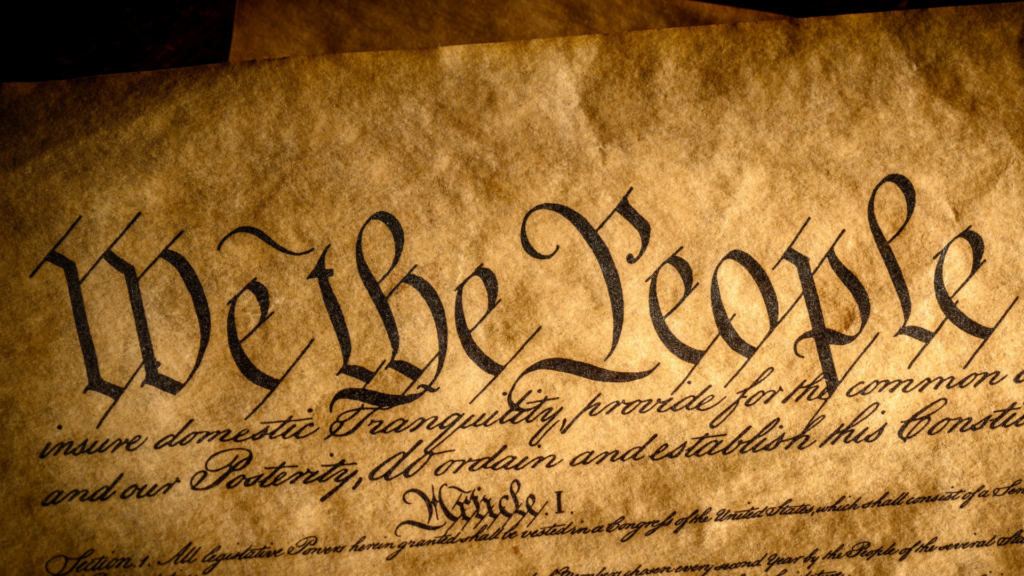 We the People
insure domestic Tranquility, provide for the common
and our Posterity, do ordain and establish this Constit
Article. I.
Section. 1. All legislative Powers herein granted shall be vested in a Congress of the United States, which shall consist of a Sen
Members chosen every second Year by the People of the several